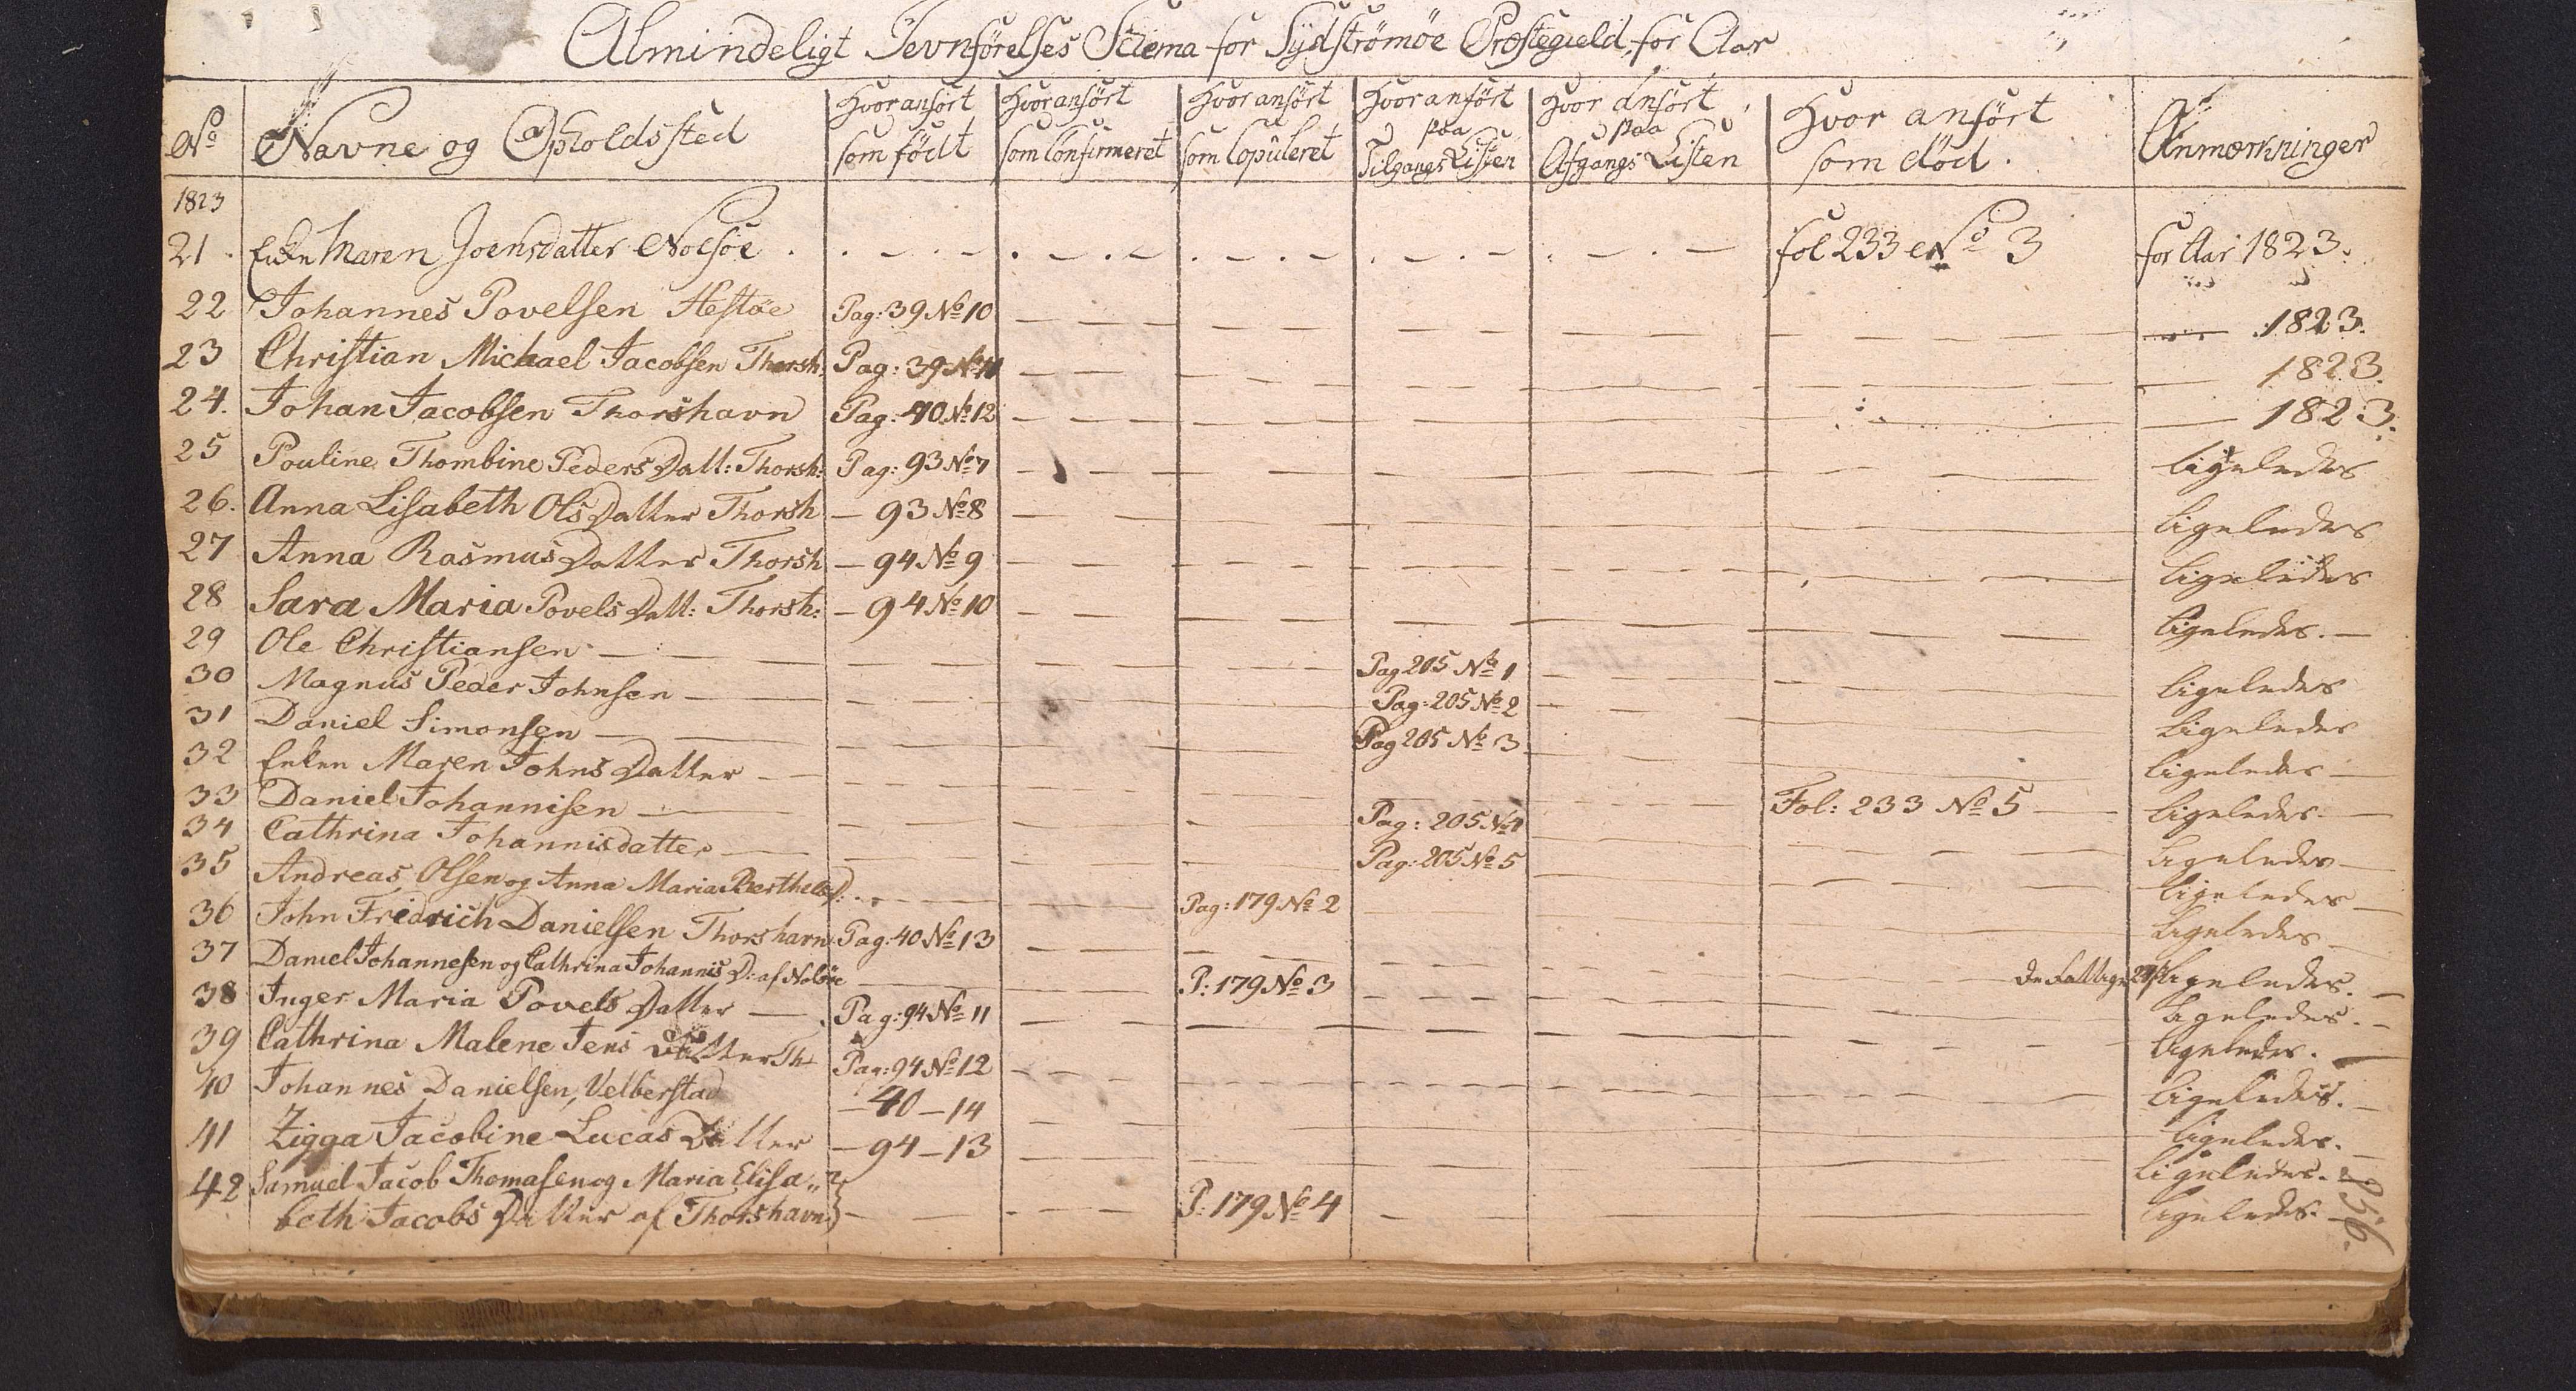 Almindeligt Jevnførelses Schema for Sydstrømøe Præstegield, for Aar
No | Navne og Opholdssted | Hvor anført som født | Hvor anført som Confirmeret | Hvor anført som Copuleret | Hvor anført paa Tilgangs Listen | Hvor anført paa Afgangs Listen | Hvor anført som død. | Anmærkninger
1823
21. Enken Maren Joensdatter Nolsøe . fol 233 No 3 for Aar 1823.
22 Johannes Povelsen Hestøe Pag: 39 No 10 — 1823.
23 Christian Michael Jacobsen Thorsh: Pag: 39 No 11 — 1823.
24. Johan Jacobsen Thorshavn Pag: 40 No 12 — 1823.
25 Pouline Thombine Peders Datt: Thorsh: Pag: 93 No 7 ligeledes
26. Anna Lisabeth Ols Datter Thorsh — 93 No 8 ligeledes
27 Anna Rasmus Datter Thorsh — 94 No 9 ligeledes
28 Sara Maria Povels Datt: Thorsh: — 94 No 10 ligeledes. —
29 Ole Christiansen — Pag 205 No 1 ligeledes
30 Magnus Peder Johnsen — Pag: 205 No 2 ligeledes
31 Daniel Simonsen — Pag 205 No 3 ligeledes —
32 Enken Maren Johns Datter — Fol: 233 No 5 — ligeledes. —
33 Daniel Johannisen — Pag: 205 No 4 ligeledes —
34 Cathrina Johannisdatter — Pag: 205 No 5 ligeledes —
35 Andreas Olsen og Anna Maria Berthels D: Pag: 179 No 2 ligeledes —
36 John Fridrich Danielsen Thorshavn Pag: 40 No 13 ligeledes. —
37 Daniel Johannesen og Cathrina Johannis D: af Nolsøe P: 179 No 3 De Fattige ligeledes. —
38 Inger Maria Povels Datter — Pag: 94 No 11 ligeledes. —
39 Cathrina Malene Jens Datter Th Pag: 94 No 12 ligeledes. —
40 Johannes Danielsen, Velberstad — 40 — 14 ligeledes. —
41 Zigga Jacobine Lucas Datter — 94 — 13 ligeledes. —
42 Samuel Jacob Thomasen og Maria Elisa„
beth Jacobs Datter af Thorshavn } P: 179 No 4 ligeledes. —
256.